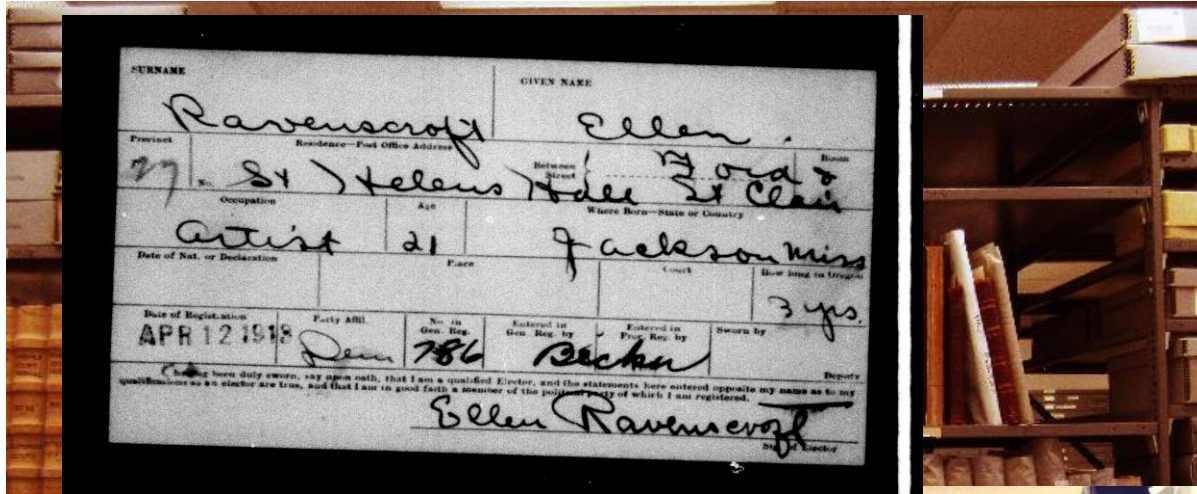 SURNAME GIVEN NAME
Ravenscroft Ellen.
Precinct Residence—Post Office Address Between Street Room
77 No. St Helens Hall Ford & St Clair
Occupation Age Where Born—State or Country
Artist 21 Jackson Miss
Date of Nat. or Declaration Place Court How long in Oregon
3 yrs.
Date of Registration Party Affil. No. in Gen. Reg. Entered in Gen. Reg. by Entered in Prec. Reg. by Sworn by
APR 12 1918 Dem 786 Deputy
I having been duly sworn, say upon oath, that I am a qualified Elector, and the statements here entered opposite my name as to my
qualifications as an elector are true, and that I am in good faith a member of the political party of which I am registered.
Ellen Ravenscroft
Sig. of Elector